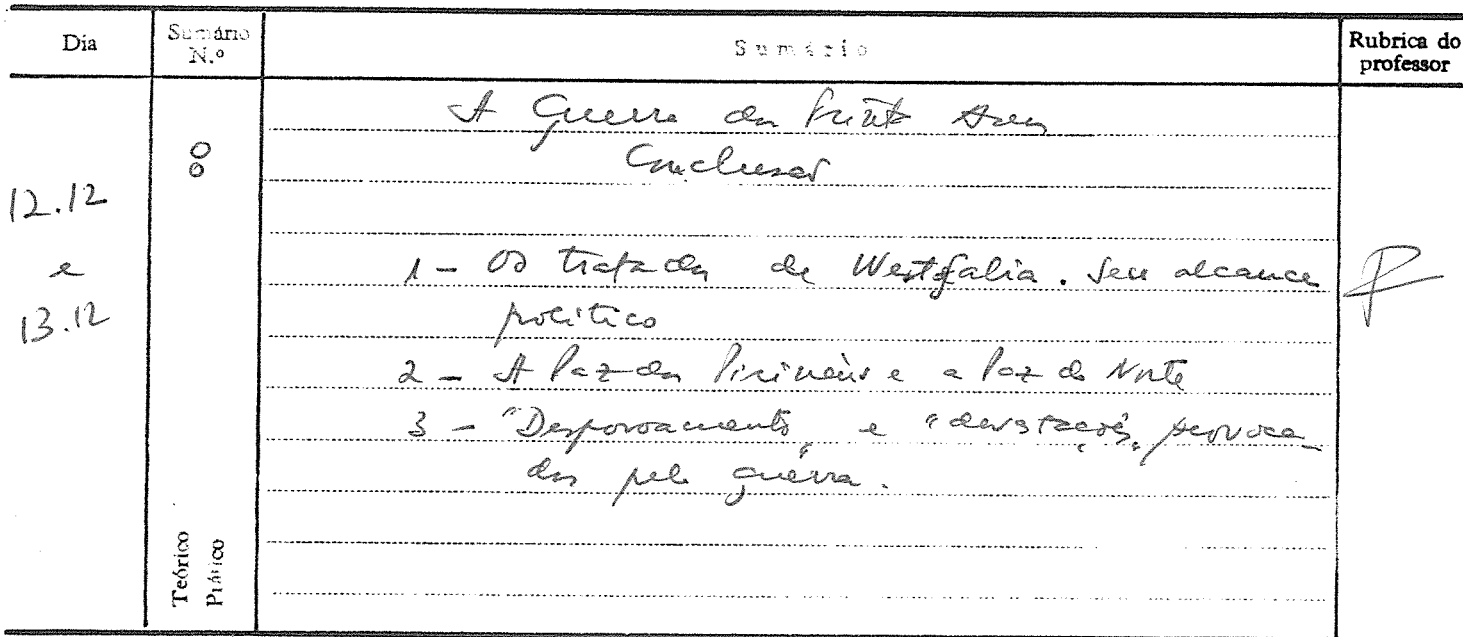 Dia
Sumário
N.º
Sumário
Rubrica do
professor
12.12
e
13.12
8
A Guerra dos Trinta Anos
Conclusão
1 - Os tratados de Westfalia. Seu alcance
político
2 - A Paz dos Pirinéus e a Paz do Norte
3 - "Despovoamento" e "devastações" provoca
dos pela guerra.
Teórico
Prático